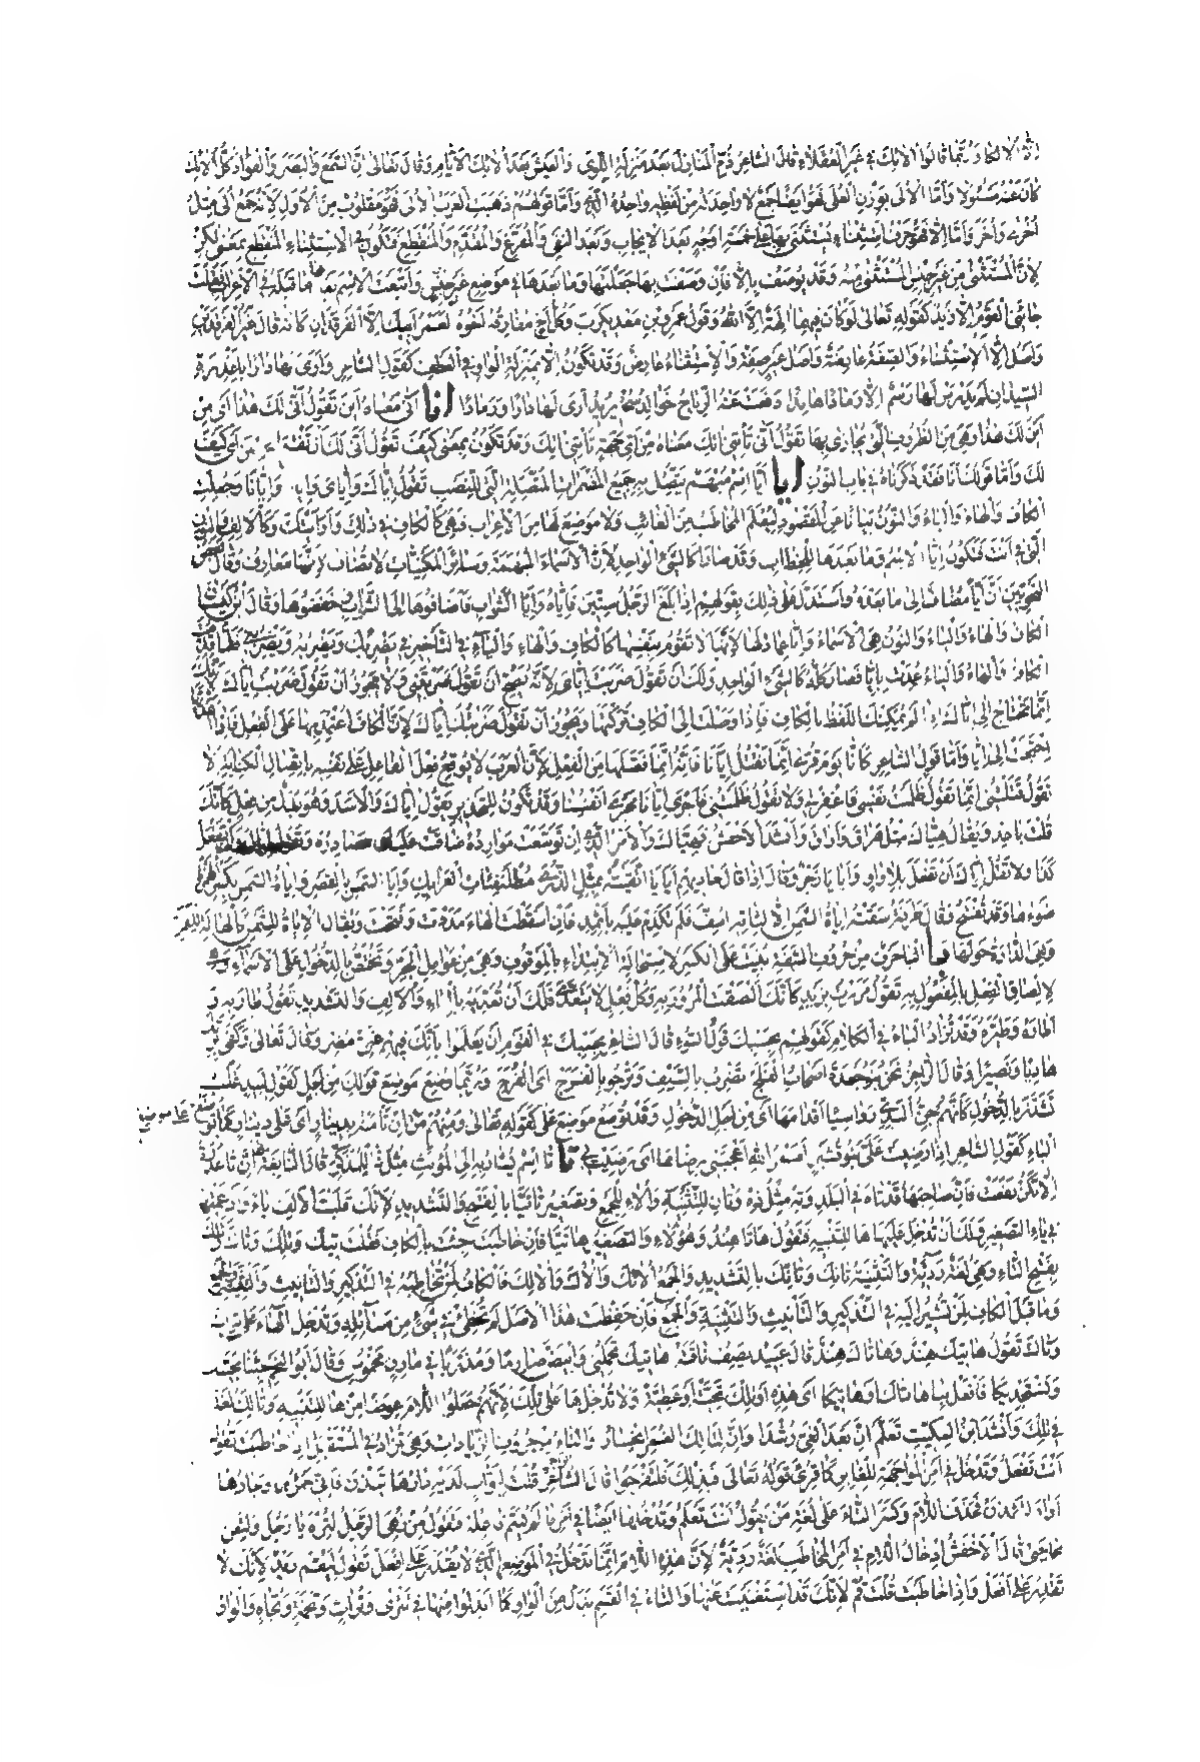 وانما قالوا اولائك في غير العقلاء قال الشاعر ذم المنازل بعد منزلة اللوى والعيش بعد اولائك الايام وقال تعالى ان السمع والبصر والفؤاد كل اولئك
كان عنه مسئولا واما الالى بوزن العلى فهو ايضا جمع لا واحد له من لفظه واحده الذي واما قولهم ذهبت العرب الالى فهو مقلوب من الاول لانه جمع اولى مثل
اخرى واخر واما الا فهو حرف استثناء يستثنى بها على خمسة اوجه بعد الايجاب وبعد النفي والمفرغ والمقدم والمنقطع فتكون في الاستثناء المنقطع بمعنى لكن
لان المستثنى من غير جنس المستثنى منه وقد يوصف بالا فان وصفت بها جعلتها وما بعدها في موضع غير واتبعت الاسم بعدها ما قبله في الاعراب فقلت
جاءني القوم الا زيد كقوله تعالى لو كان فيهما الهة الا الله وقول عمرو بن معديكرب وكل اخ مفارقه اخوه لعمر ابيك الا الفرقدان كانه قال غير الفرقدين
واصل الا الاستثناء والصفة عارضة واصل غير صفة والاستثناء عارض وقد تكون الا بمنزلة الواو في العطف كقول الشاعر وارى لها دارا باغدرة
السيدان لم يدرس لها رسم الا رمادا هامدا دفعت عنه الرياح خوالد سحم يريد ارى لها دارا ورمادا انى انى معناه اين تقول انى لك هذا اى من
اين لك هذا وهي من الظروف التي يجازى بها تقول انى تأتني اتك معناه من اي جهة تأتني اتك وقد تكون بمعنى كيف تقول انى لك ان تفتح اي كيف
لك واما قولك انا فقد ذكرناه في باب النون ايا ايا اسم مبهم يتصل به جميع المضمرات المتصلة التي للنصب تقول اياك واياي واياه وايانا وجعلت
الكاف والهاء والياء والنون بيانا عن المقصود ليعلم المخاطب من الغائب ولا موضع لها من الاعراب فهي كالكاف في ذلك وارأيتك وكالالف والنون
التي في انت فتكون ايا الاسم وما بعدها للخطاب وقد صارا كالشيء الواحد لان الاسماء المبهمة وسائر المكنيات لا تضاف لانها معارف وقال بعض
النحويين ان ايا مضاف الى ما بعده واستدل على ذلك بقولهم اذا بلغ الرجل الستين فاياه وايا الشواب فاضافوها الى الشواب وخفضوها وقال ابن كيسان
الكاف والهاء والياء والنون هي الاسماء وايا عماد لها لانها لا تقوم بنفسها كالكاف والهاء والياء في التأخير في يضربك ويضربه ويضربني فلما قدمت
الكاف والهاء والياء عمدت بايا فصار كله كالشيء الواحد ولك ان تقول ضربت اياي لانه يصح ان تقول ضربتني ولا يجوز ان تقول ضربت اياك لانك
انما تحتاج الى اياك اذا لم يمكنك اللفظ بالكاف فاذا وصلت الى الكاف تركتها ويجوز ان تقول ضربتك اياك لان الكاف اعتمد بها على الفعل فاذا
احتجت الى ايا واما قول الشاعر كانا يوم قرى انما نقتل ايانا فانه انما فصلها من الفعل لان العرب لا توقع فعل الفاعل على نفسه باتصال الكناية لا
تقول قتلتني انما تقول ظلمت نفسي فاغفر لي ولا تقول ظلمتني فاجرى ايانا مجرى انفسنا وقد تكون للتحذير تقول اياك والاسد وهو بدل من فعل كانك
قلت باعد ويقال هياك مثل هراق واراق وانشد الاخفش فهياك والامر الذي ان توسعت موارده ضاقت عليك مصادره
كذا ولا تقل اياك ان تفعل بلا واو
وهي اللذادة حولها با الباء حرف من حروف الشفة بنيت على الكسر لاستحالة الابتداء بالموقوف وهي من عوامل الجر وتختص بالدخول على الاسماء وهي
لالصاق الفعل بالمفعول به تقول مررت بزيد كانك الصقت المرور به وكل فعل لا يتعدى فلك ان تعديه بالباء والالف والتشديد تقول طار به
اطاره وطيره وقد تزاد الباء في الكلام كقولهم بحسبك قول السوء قال الشاعر بحسبك في القوم ان يعلموا بانك فيهم غني مضر وقال تعالى وكفى بربك
هاديا ونصيرا وقال الراجز نحن بنو جعدة اصحاب الفلج نضرب بالسيف ونرجو بالفرج اي الفرج وربما وضع موضع قولك من اجل كقول لبيد غلب
تشذر بالذحول كانهم جن البدي رواسيا اقدامها اي من اجل الذحول وقد توضع موضع على كقوله تعالى ومنهم من ان تأمنه بدينار اي على دينار وكما توضع على موضع
الباء كقول الشاعر اذا رضيت علي بنو قشير لعمر الله اعجبني رضاها اي رضيت بي تا تا اسم يشار به الى المؤنث مثل ذا للمذكر قال النابغة ها ان تا عذرة
الا تكن نفعت فان صاحبها قد تاه في البلد وته مثل ذه وتان للتثنية واولاء للجمع وتصغير تا تيا بالفتح والتشديد لانك قلبت الالف ياء وادغمتها
في ياء التصغير ولك ان تدخل عليها ها للتنبيه فتقول هاتا هند وهؤلاء والتصغير هاتيا فان خاطبت جئت بالكاف فقلت تيك وتلك وتاك وتلك
بفتح التاء وهي لغة رديئة والتثنية تانك وتانك بالتشديد والجمع اولئك واولاك واولالك فالكاف لمن تخاطبه في التذكير والتأنيث والتثنية والجمع
وما قبل الكاف لمن تشير اليه في التذكير والتأنيث والتثنية والجمع فان حفظت هذا الاصل لم تخطئ في شيء من مسائله وتدخل الهاء على تيك
وتاك تقول هاتيك هند وهاتاك هند قال عبيد يصف ناقة هاتيك تحملني وابيض صارما ومذربا في مارن مخموس وقال ابو النجم جئنا نحييك
ونستجديكا فافعل بنا هاتاك او هاتيكا اي هذه او تلك تحية او عطية ولا تدخل ها على تلك لانهم جعلوا اللام عوضا من ها للتنبيه وتالك لغة
في تلك وانشد ابن السكيت تعلم ان بعد الغي رشدا وان لتالك الغمر انحسارا والتاء من حروف الزيادات وهي تزاد في المستقبل اذا خاطبت تقول
انت تفعل وتدخل في امر المواجهة للغابر كما قرئ قوله تعالى فبذلك فلتفرحوا قال الشاعر قلت لبواب لديه دارها تيذن فاني حمؤها وجارها
اراد لتيذن فحذف اللام وكسر التاء على لغة من يقول انت تعلم وتدخلها ايضا في امر ما لم يسم فاعله فتقول من زهي الرجل لتزه يا رجل ولتعن
بحاجتي قال الاخفش ادخال اللام في امر المخاطب لغة رديئة لان هذه اللام انما تدخل في الموضع الذي لا يقدر على افعل تقول ليقم زيد لانك لا
تقدر على افعل واذا خاطبت قلت قم لانك قد استغنيت عنها والتاء في القسم بدل من الواو كما ابدلوا منها في تترى وتراث وتخمة وتجاه والواو